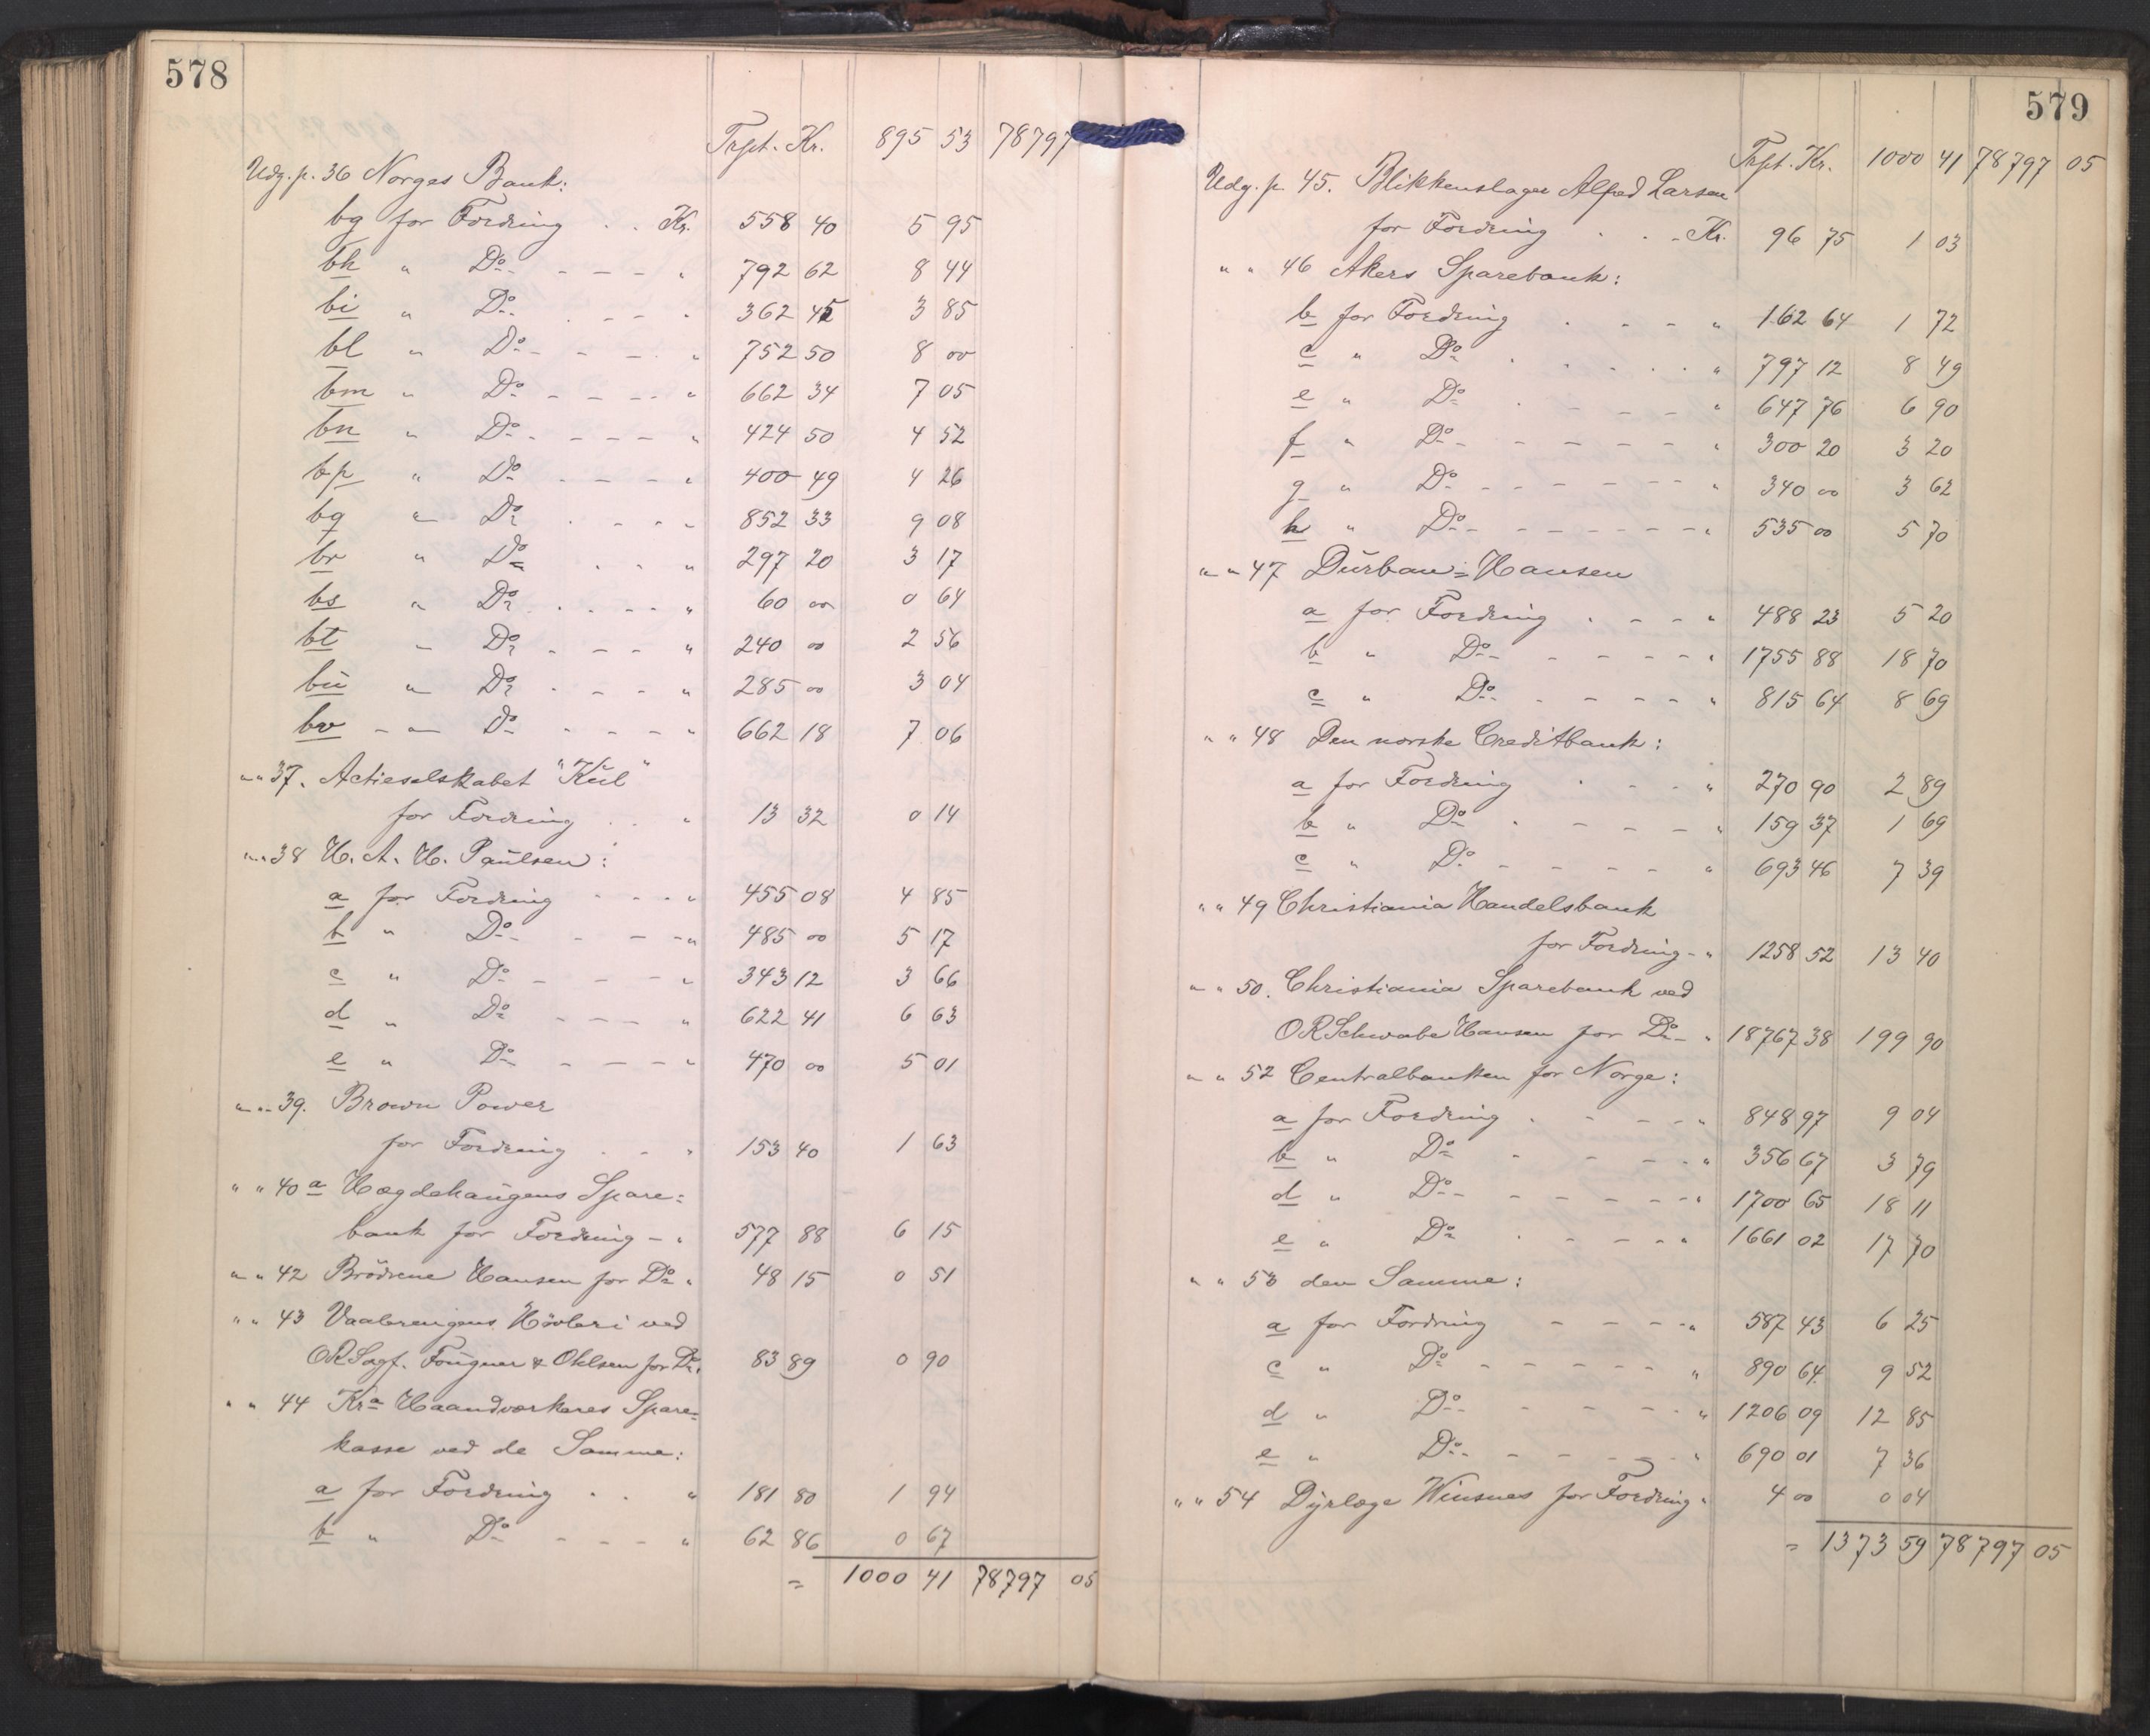 578
Trpt. Kr. 895 53 78797
Udg. p. 36 Norges Bank:
bg for Fordring . . Kr. 558 40 5 95
bh " Do - - - - " 792 62 8 44
bi " Do - - - " 362 45 3 85
bl " Do - - - - " 752 50 8 00
bm " Do - - - - " 662 34 7 05
bn " Do - - - - " 424 50 4 52
bp " Do - - - - " 400 49 4 26
bq " Do - - - - 852 33 9 08
br " Do . . " 297 20 3 17
bs " Do . . . . " 60 00 0 64
bt " Do - - - " 240 00 2 56
bu " Do - - - " 285 00 3 04
bv - " Do - - - - " 662 18 7 06
" " 37. Actieselskabet "Kul"
for Fordring . . " 13 32 0 14
" " 38 H. A. H. Paulsen:
a for Fordring - - - " 455 08 4 85
b " Do - - - " 485 00 5 17
c " Do - - - - " 343 12 3 66
d " Do - - - " 622 41 6 63
e " Do - - - - " 470 00 5 01
" " 39. Brown Power
for Fordring . . " 153 40 1 63
" " 40 a Hægdehaugens Spare=
bank for Fordring - " 577 88 6 15
" " 42 Brödrene Hansen for Do " 48 15 0 51
" " 43 Vaalerengens Høvleri ved
ORSagf. Fougner & Ohlsen for Do " 83 89 0 90
" " 44 Kra Haandværkeres Spare=
kasse ved de Samme:
a for Fordring . . " 181 80 1 94
b " Do - - - " 62 86 0 67
= 1000 41 78797 05
579
Trpt. Kr. 1000 41 78797 05
Udg. p. 45. Blikkenslager Alfred Larsen
for Fordring . . - Kr. 96 75 1 03
" " 46 Akers Sparebank:
b for Fordring . - - - " 162 64 1 72
c " Do . . . . . " 797 12 8 49
e " Do . - - - " 647 76 6 90
f " Do - - - - - - " 300 20 3 20
g " Do - - - - - - " 340 00 3 62
h " Do - - - - - - " 535 00 5 70
" " 47 Durban=Hansen
a for Fordring . - - " 488 23 5 20
b " Do - - - - - " 1755 88 18 70
c " Do - - - - - " 815 64 8 69
" " 48 Den norske Creditbank:
a for Fordring . - - " 270 90 2 89
b " Do . - - - - " 159 37 1 69
c " Do - - - - - " 693 46 7 39
" " 49 Christiania Handelsbank
for Fordring - " 1258 52 13 40
" " 50. Christiania Sparebank ved
ORSchwabe Hansen for Do - " 18767 38 199 90
" " 52 Centralbanken for Norge:
a for Fordring . - - - " 848 97 9 04
b " Do - - - - " 356 67 3 79
d " Do - - - - - - " 1700 65 18 11
e " Do . - - - - " 1661 02 17 70
" " 53 den Samme:
a for Fordring - - - - " 587 43 6 25
c " Do - - - - - " 890 64 9 52
d " Do - - - - " 1206 09 12 85
e " Do - - - - - " 690 01 7 36
" " 54 Dyrlæge Winsnes for Fordring " 4 00 0 04
= 1373 59 78797 05